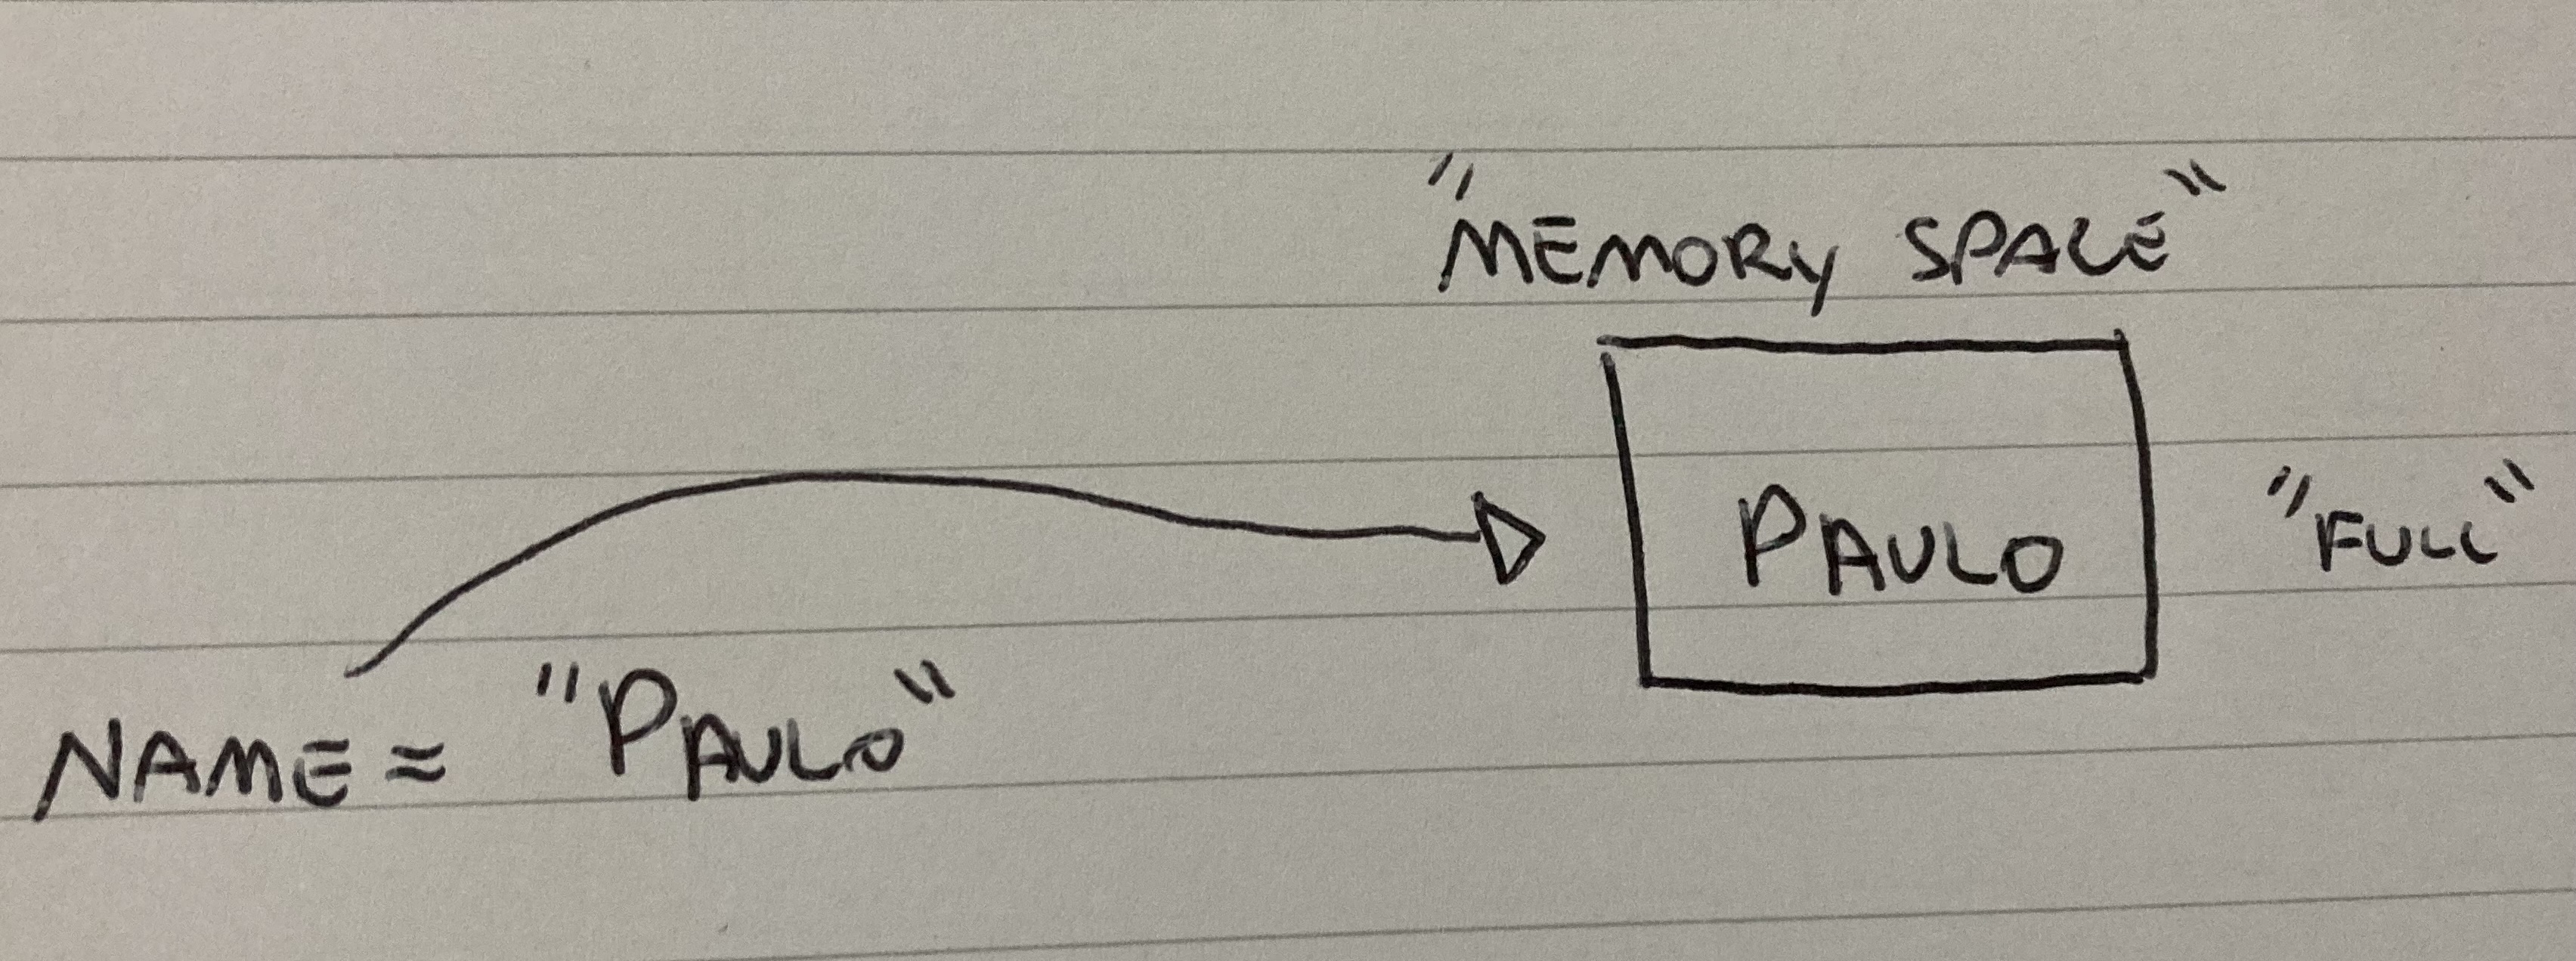 "MEMORY SPACE"
PAULO
"FULL"
NAME = "PAULO"